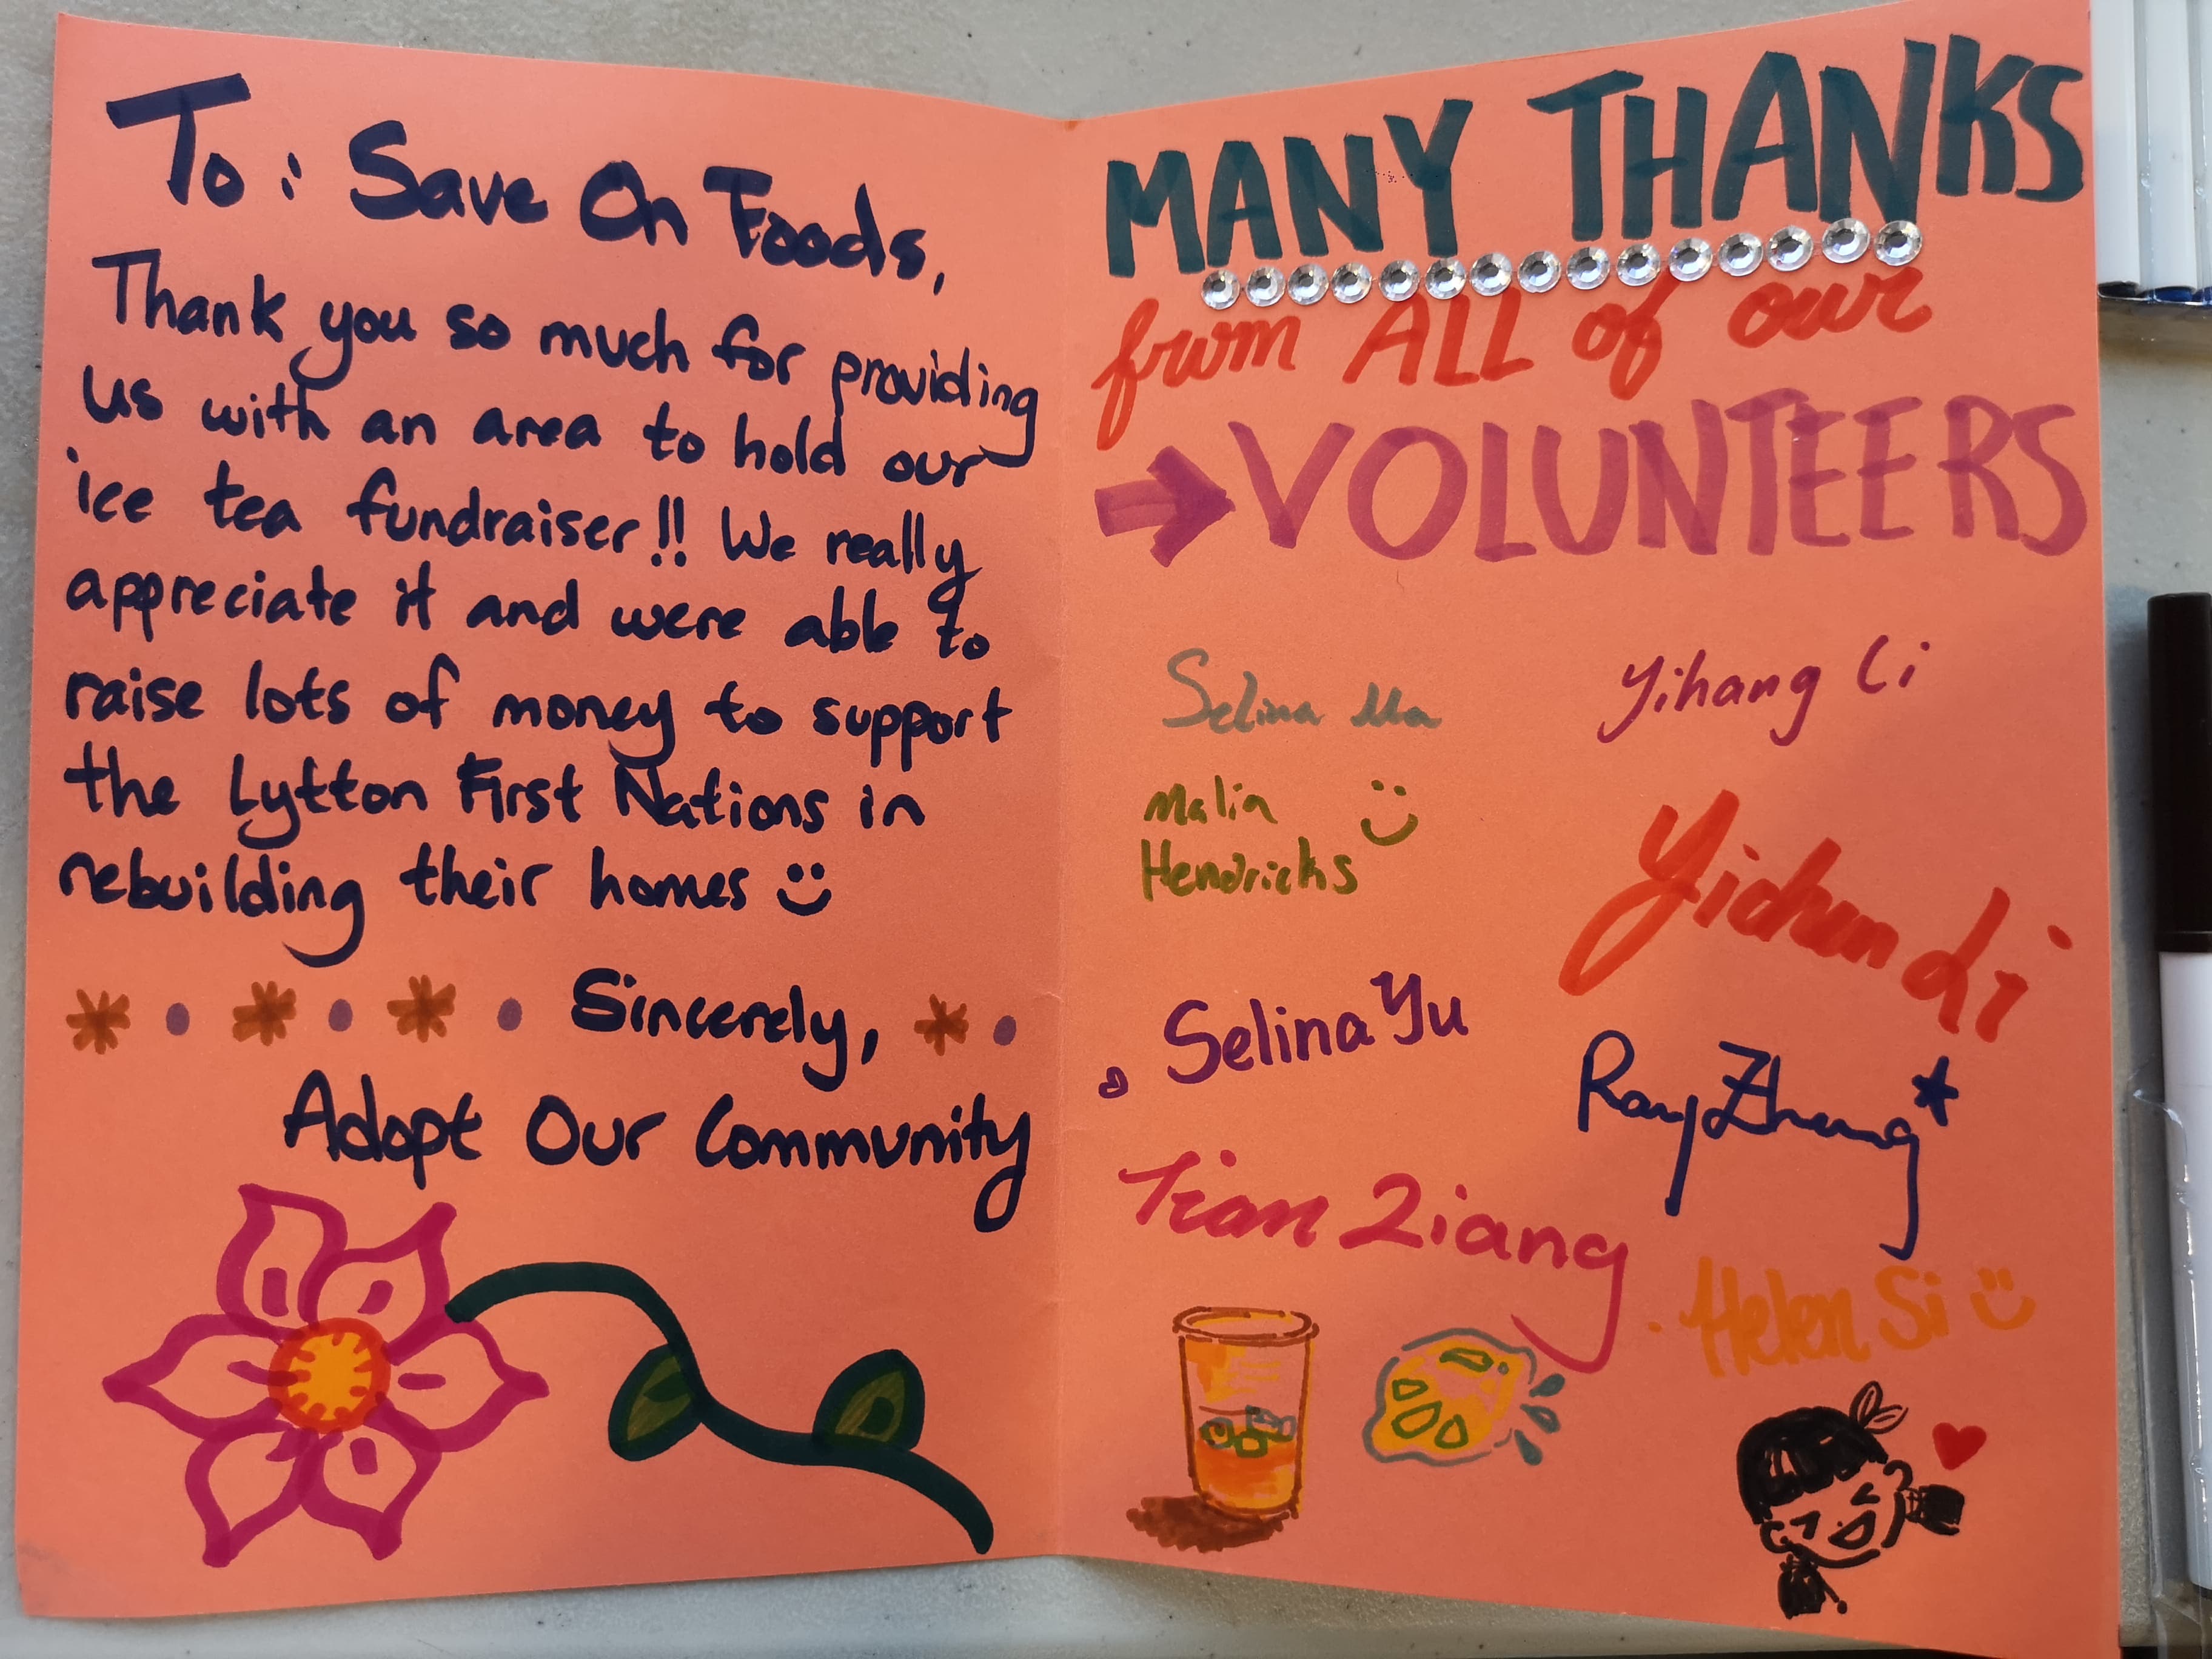 To: Save On Foods,
Thank you so much for providing
us with an area to hold our
ice tea fundraiser!! We really
appreciate it and were able to
raise lots of money to support
the Lytton First Nations in
rebuilding their homes
Sincerely,
Adopt Our Community
MANY THANKS
from ALL of our
VOLUNTEERS
Selina Ma
Yihang Li
Malin
Hendricks
Yichen Li
Selina Yu
Ray Zheng
Tian Qiang
Helen Si